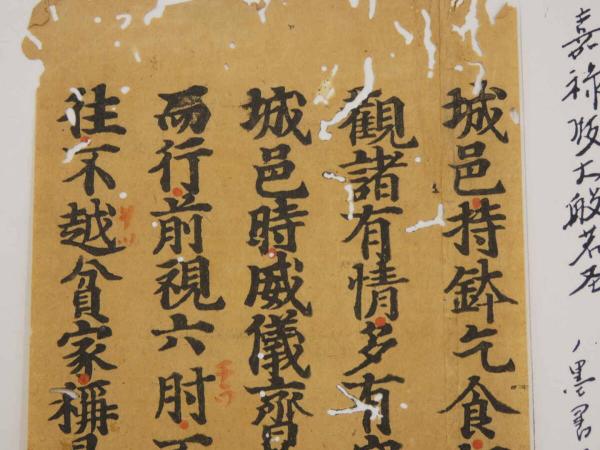 嘉禄版大般若经
城邑持鉢乞食
觀諸有情多有
城邑時威儀齊
而行前視六肘
往不越貧家稱